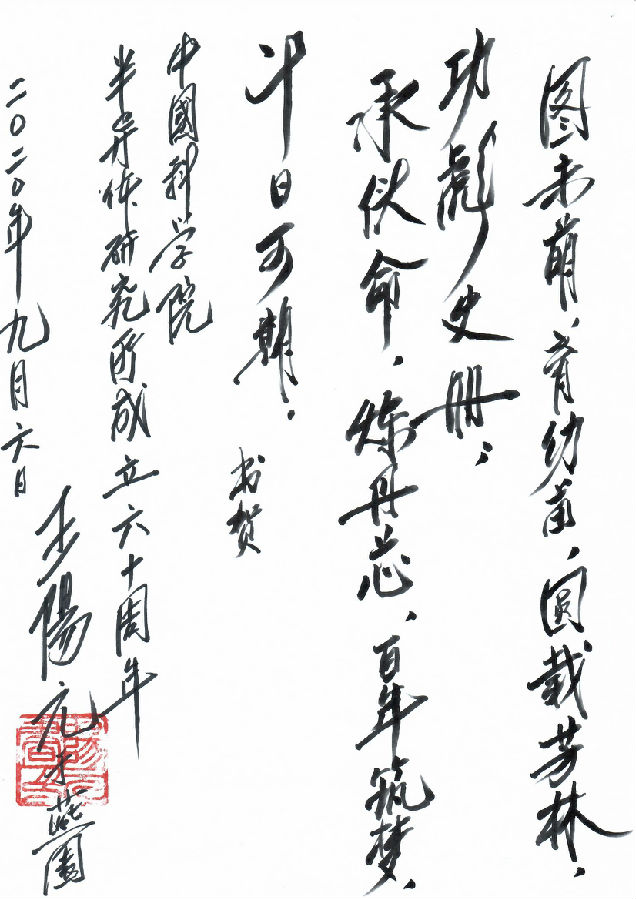 图未萌，育幼苗，圆载芳林，
功彪史册；
承使命，炼丹芯，百年筑梦，
计日可期。书贺
中國科学院
半导体研究所成立六十周年
二〇二〇年九月六日
王陽元于燕園